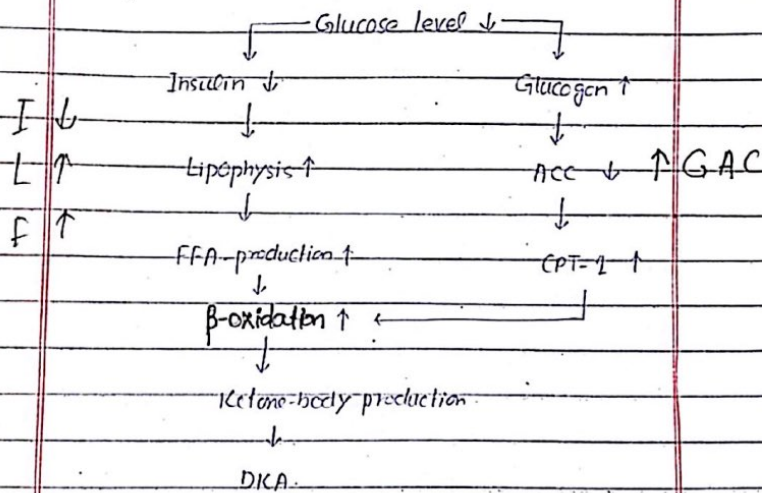 Glucose level ↓
Insulin ↓ Glucogon ↑
I ↓
L ↑ Lipophysis ↑ ACC ↓ ↑ GAC
F ↑
FFA-production ↑ CPT-1 ↑
β-oxidation ↑
Ketone-body production
DKA.